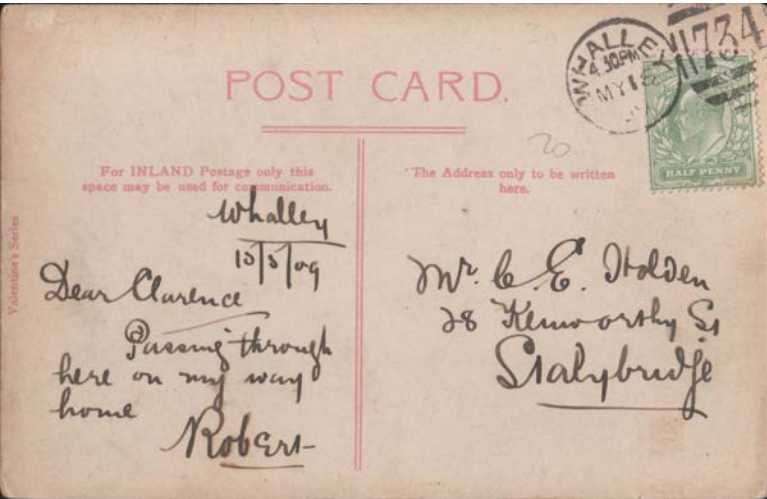 POST CARD.
WHALLEY
4.30PM
MY 18
1734
HALF PENNY
For INLAND Postage only this
space may be used for communication.
The Address only to be written
here.
Valentine's Series
30
20
Whalley
/5/09
Dear Clarence
Passing through
here on my way
home
Robert
Mr. C. E. Holden
28 Kenworthy St
Stalybridge